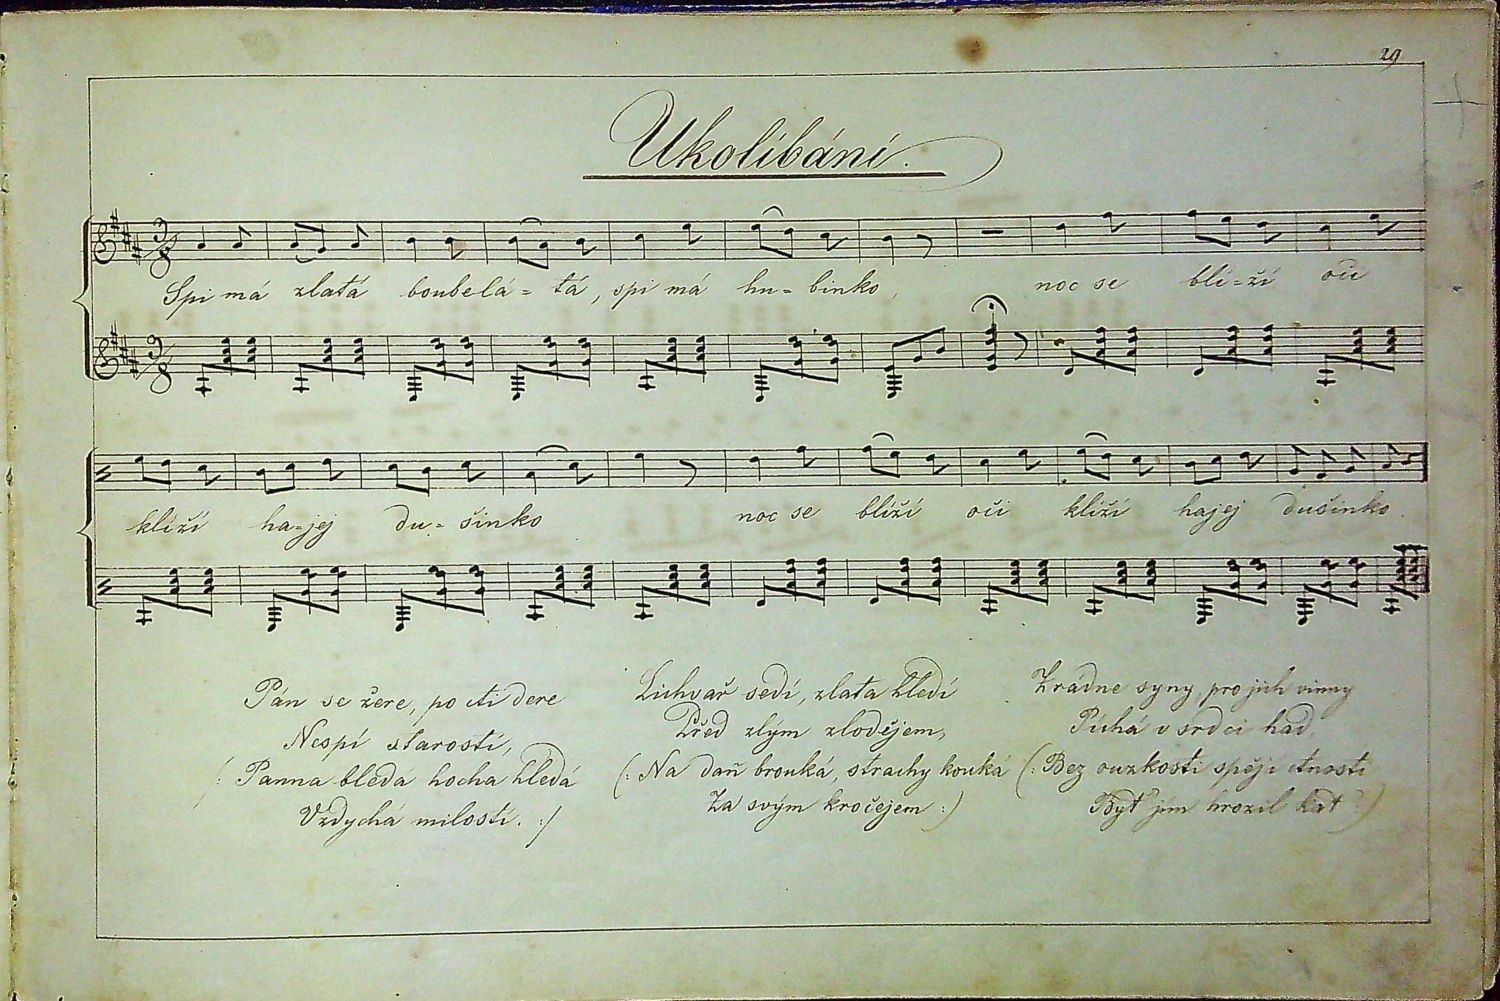 29
Ukolíbání.
Spi má zlatá boubela=tá, spi má hu=binko, noc se blí=ží oči
klíží ha=jej du=šinko noc se blíží oči klíží hajej dušinko.
Pán se žere, po cti dere
Nespí starostí,
/: Panna bledá hocha hledá
Vzdychá milostí. :/
Lichvař sedí, zlata hledí
Před zlým zlodějem,
(: Na daň brouká, strachy kouká
Za svým kročejem :)
Zrádné syny, pro jich vinny
Píchá v srdci had.
(: Bez ouzkosti spějí ctnosti
Byť jim hrozil kat :)